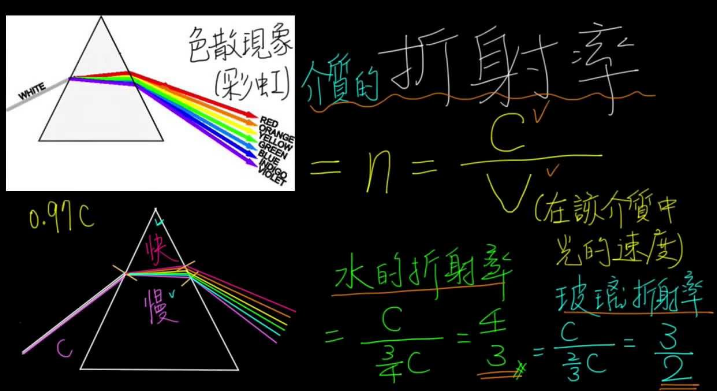 色散現象
(彩虹)
WHITE
RED
ORANGE
YELLOW
GREEN
BLUE
INDIGO
VIOLET
介質的折射率
= n = C / V
(在該介質中
光的速度)
0.97C
快
慢
C
水的折射率
= C / (3/4 C) = 4/3
玻璃折射率
= C / (2/3 C) = 3/2